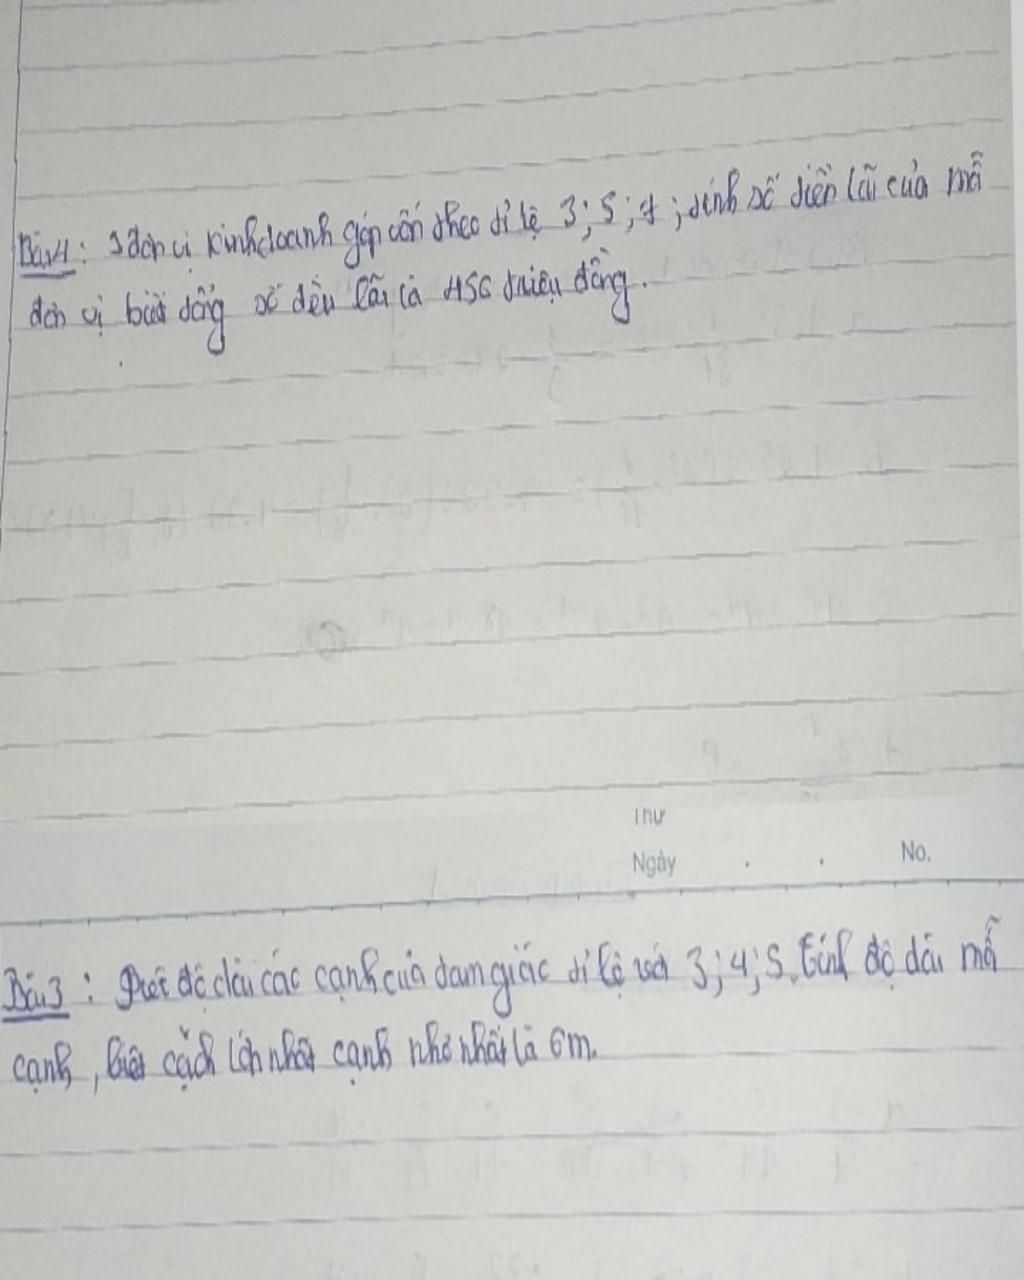 Bài 1: 3 đơn vị kinh doanh góp vốn theo tỉ lệ 3; 5; 7; tính số tiền lãi của mỗi
đơn vị biết tổng số tiền lãi là 450 triệu đồng.
Thứ
Ngày . . No.
Bài 3: độ dài các cạnh của tam giác tỉ lệ với 3; 4; 5. Tính độ dài mỗi
cạnh, biết cạnh lớn nhất cạnh nhỏ nhất là 6m.